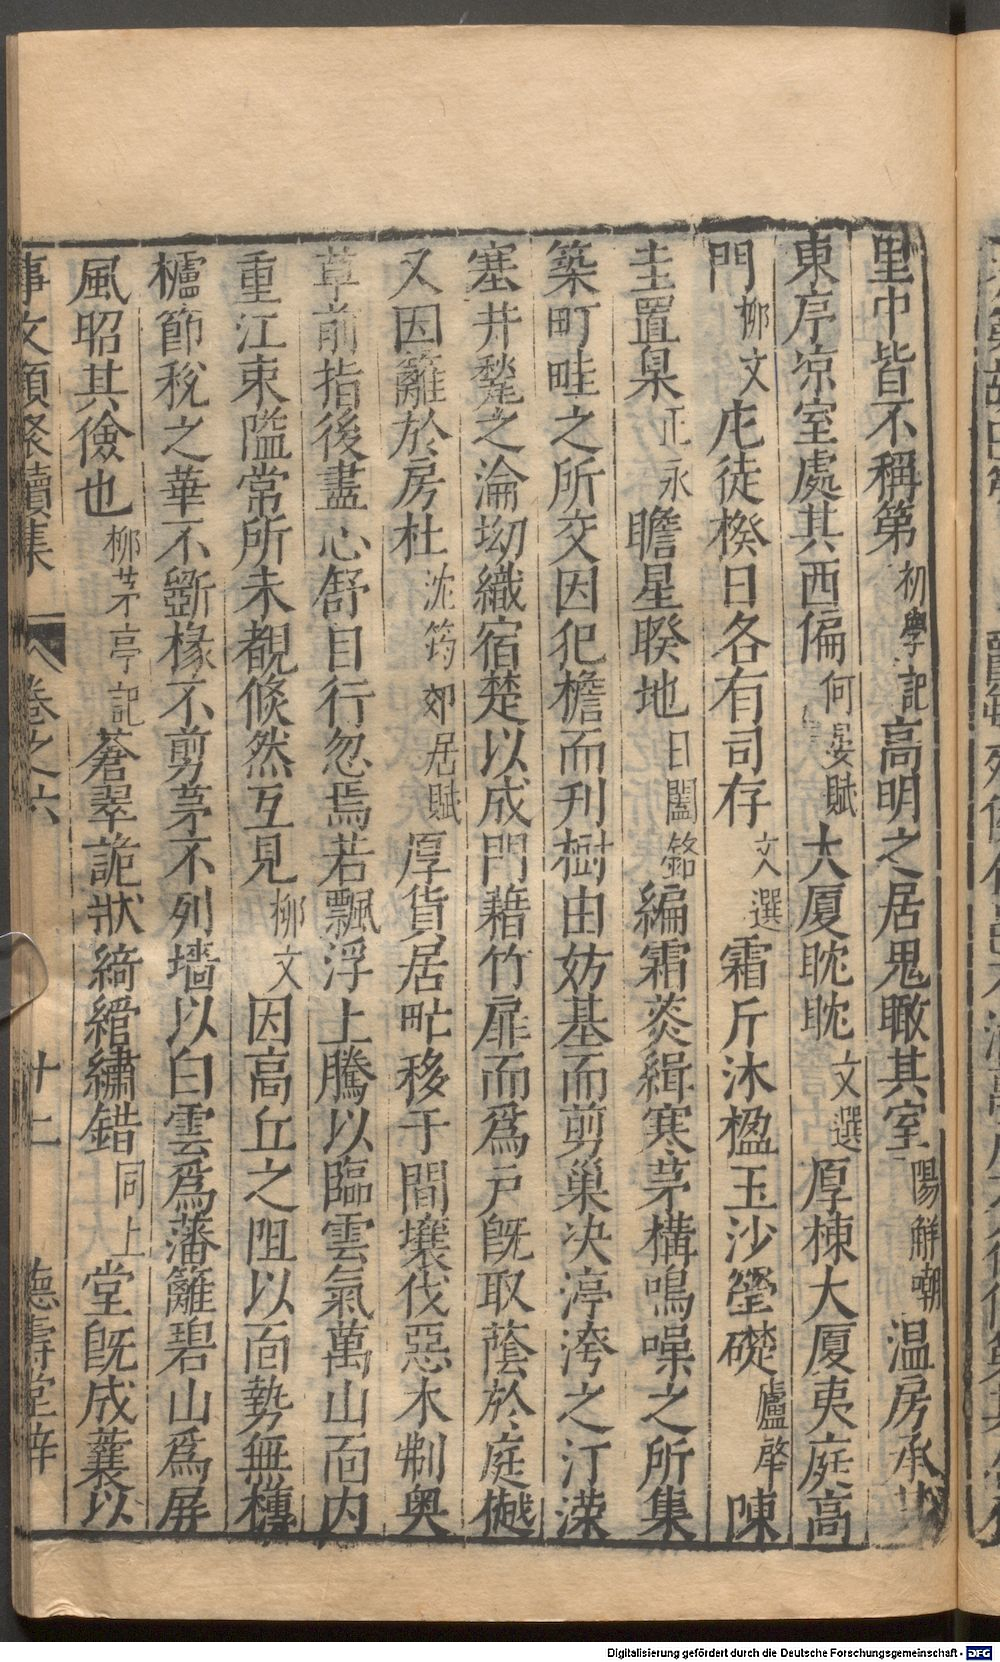 里中皆不稱第初學記高明之居鬼瞰其室陽解嘲温房承其
東序凉室處其西偏何晏賦大厦耽耽文選厚棟大厦夷庭高
門柳文庀徒揆日各有司存文選霜斤沐楹玉沙瑩礎盧肇陳
圭置臬正永瞻星睽地日閣銘編霜菼緝寒茅構鳴噪之所集
築町畦之所交因犯檐而刋樹由妨基而剪巢决渟洿之汀濚
塞井甃之淪坳織宿楚以成門藉竹扉而爲戸旣取蔭於庭樾
又因籬於房杜沈約郊居賦厚貨居甿移于間壤伐惡木剬奥
草前指後畫心舒目行忽焉若飄浮上騰以臨雲氣萬山面内
重江束隘常所未覩倐然互見柳文因高丘之阻以面勢無欂
櫨節稅之華不斲椽不剪茅不列墙以白雲爲藩籬碧山爲屏
風昭其儉也柳茅亭記蒼翠詭狀綺綰繡錯同上堂旣成蘘以
事文類聚續集 卷之六 廿二 德壽堂梓
Digitalisierung gefördert durch die Deutsche Forschungsgemeinschaft - DFG